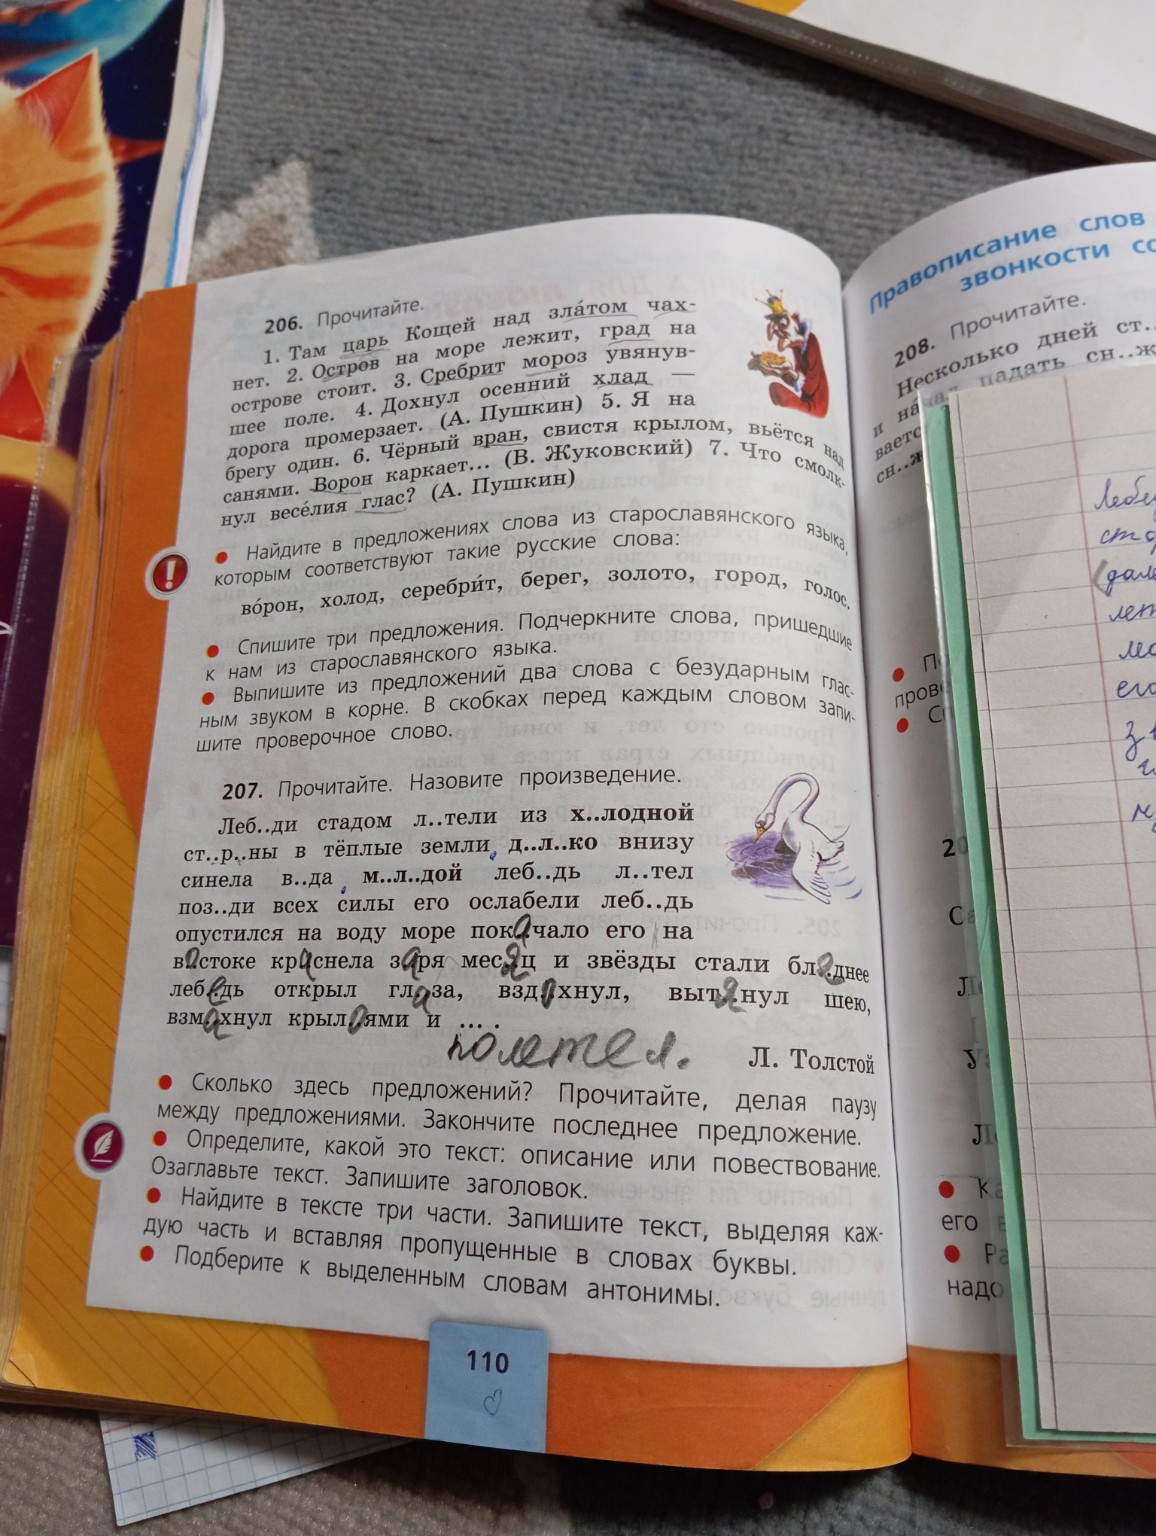 206. Прочитайте.
1. Там царь Кощей над зла́том чах-
нет. 2. Остров на море лежит, град на
острове стоит. 3. Сребрит мороз увянув-
шее поле. 4. Дохнул осенний хлад —
дорога промерзает. (А. Пушкин) 5. Я на
брегу один. 6. Чёрный вран, свистя крылом, вьётся над
санями. Ворон каркает... (В. Жуковский) 7. Что смолк-
нул весе́лия глас? (А. Пушкин)
• Найдите в предложениях слова из старославянского языка,
которым соответствуют такие русские слова:
во́рон, холод, серебри́т, берег, золото, город, голос.
• Спишите три предложения. Подчеркните слова, пришедшие
к нам из старославянского языка.
• Выпишите из предложений два слова с безударным глас-
ным звуком в корне. В скобках перед каждым словом запи-
шите проверочное слово.
207. Прочитайте. Назовите произведение.
Леб..ди стадом л..тели из х..лодной
ст..р..ны в тёплые земли, д..л..ко внизу
синела в..да, м..л..дой леб..дь л..тел
поз..ди всех силы его ослабели леб..дь
опустился на воду море покачало его на
востоке краснела заря месяц и звёзды стали бледнее
лебедь открыл глаза, вздохнул, вытянул шею,
взмахнул крыл..ями и ... .
полетел.
Л. Толстой
• Сколько здесь предложений? Прочитайте, делая паузу
между предложениями. Закончите последнее предложение.
• Определите, какой это текст: описание или повествование.
Озаглавьте текст. Запишите заголовок.
• Найдите в тексте три части. Запишите текст, выделяя каж-
дую часть и вставляя пропущенные в словах буквы.
• Подберите к выделенным словам антонимы.
110
Правописание слов
звонкости
208. Прочитайте.
Несколько дней ст..
падать сн..ж